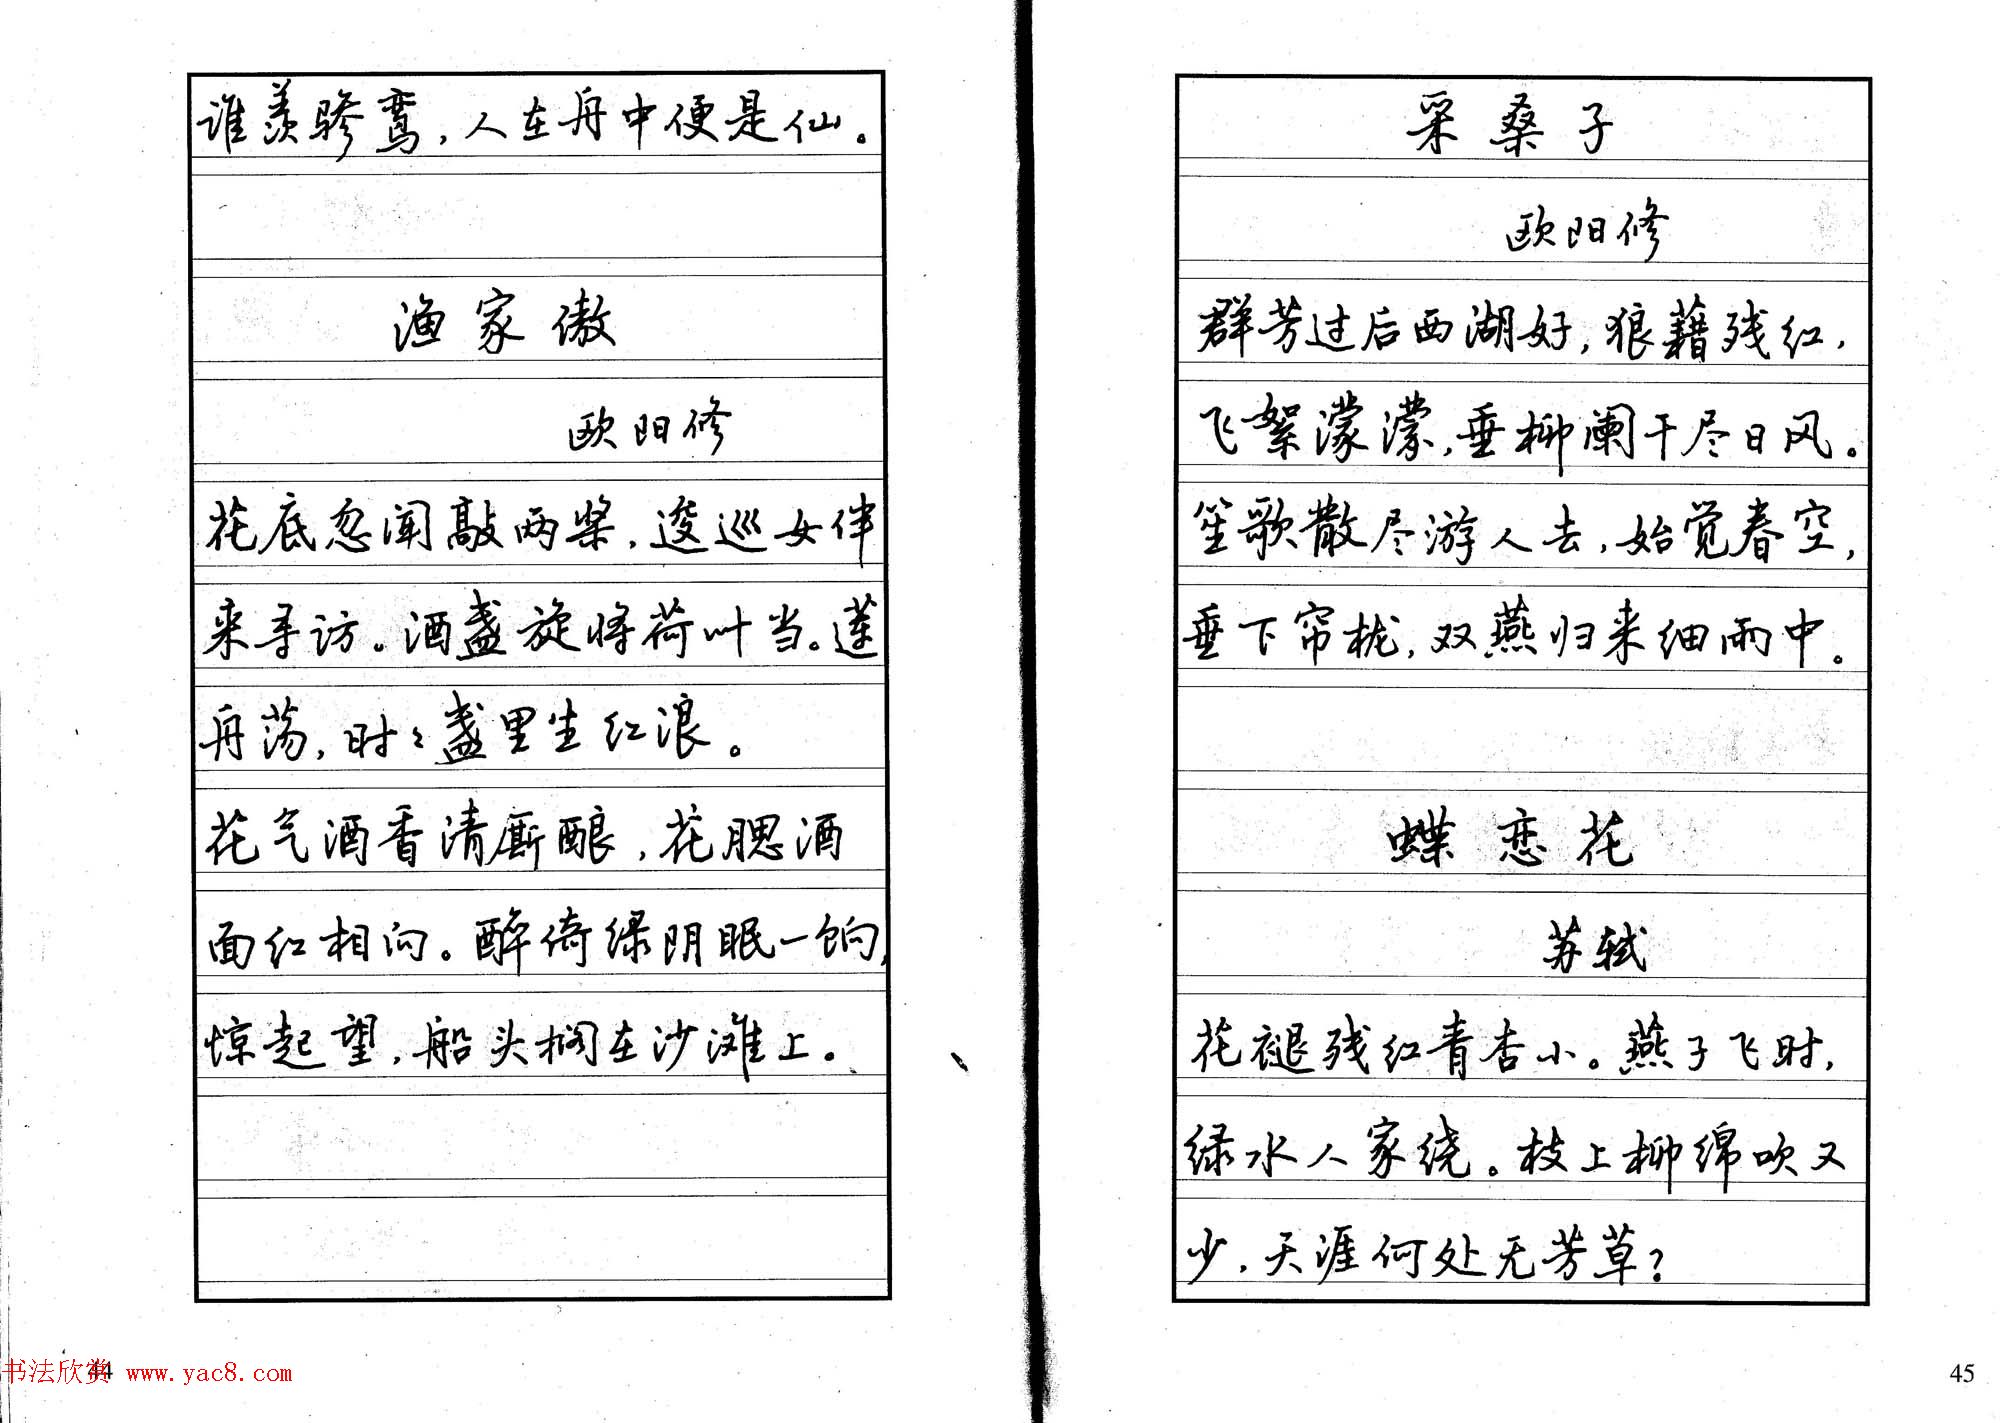 谁羡骖鸾，人在舟中便是仙。
渔家傲
欧阳修
花底忽闻敲两桨，逡巡女伴
来寻访。酒盏旋将荷叶当。莲
舟荡，时时盏里生红浪。
花气酒香清厮酿，花腮酒
面红相向。醉倚绿阴眠一饷，
惊起望，船头搁在沙滩上。
书法欣赏 www.yac8.com
44
采桑子
欧阳修
群芳过后西湖好，狼藉残红，
飞絮濛濛，垂柳阑干尽日风。
笙歌散尽游人去，始觉春空，
垂下帘栊，双燕归来细雨中。
蝶恋花
苏轼
花褪残红青杏小。燕子飞时，
绿水人家绕。枝上柳绵吹又
少，天涯何处无芳草？
45